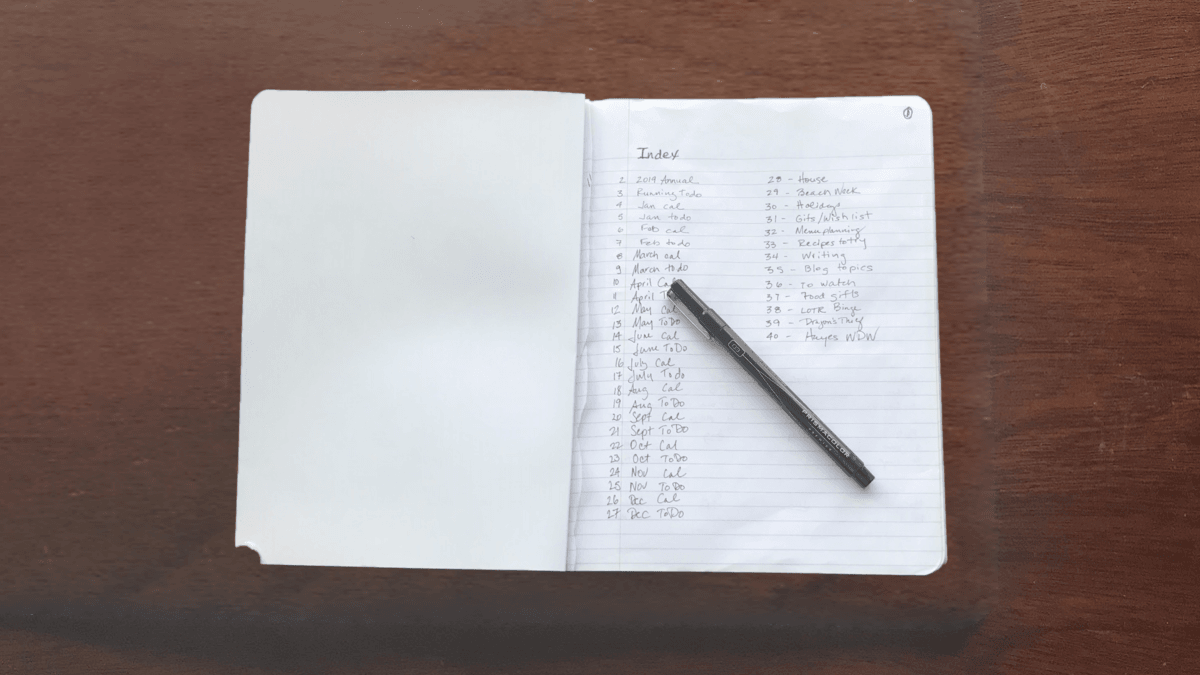 1
Index
2 2019 Annual
3 Running Todo
4 Jan cal
5 Jan todo
6 Feb cal
7 Feb todo
8 March cal
9 March todo
10 April Cal
11 April
12 May Cal
13 May ToDo
14 June Cal
15 June ToDo
16 July Cal
17 July Todo
18 Aug Cal
19 Aug ToDo
20 Sept Cal
21 Sept ToDo
22 Oct Cal
23 Oct ToDo
24 Nov Cal
25 Nov ToDo
26 Dec Cal
27 Dec ToDo
28 - House
29 - Beach Week
30 - Holidays
31 - Gifts/Wish list
32 - Menu planning
33 - Recipes to try
34 - Writing
35 - Blog topics
36 - To watch
37 - Food gifts
38 - LOTR Binge
39 - Dragon's Thief
40 - Hayes WDW
PRISMACOLOR